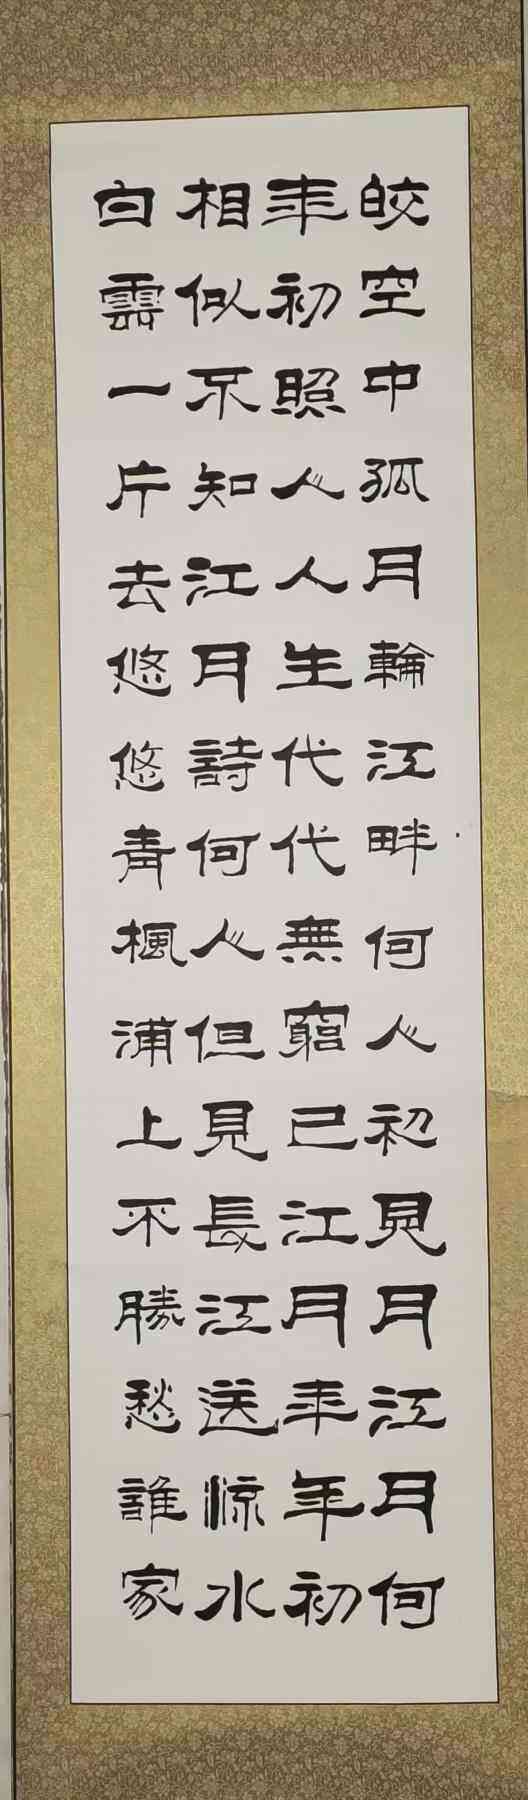 皎空中孤月輪江畔何人初見月江月何
年初照人人生代代無窮已江月年年初
相似不知江月詩何人但見長江送流水
白雲一片去悠悠青楓浦上不勝愁誰家